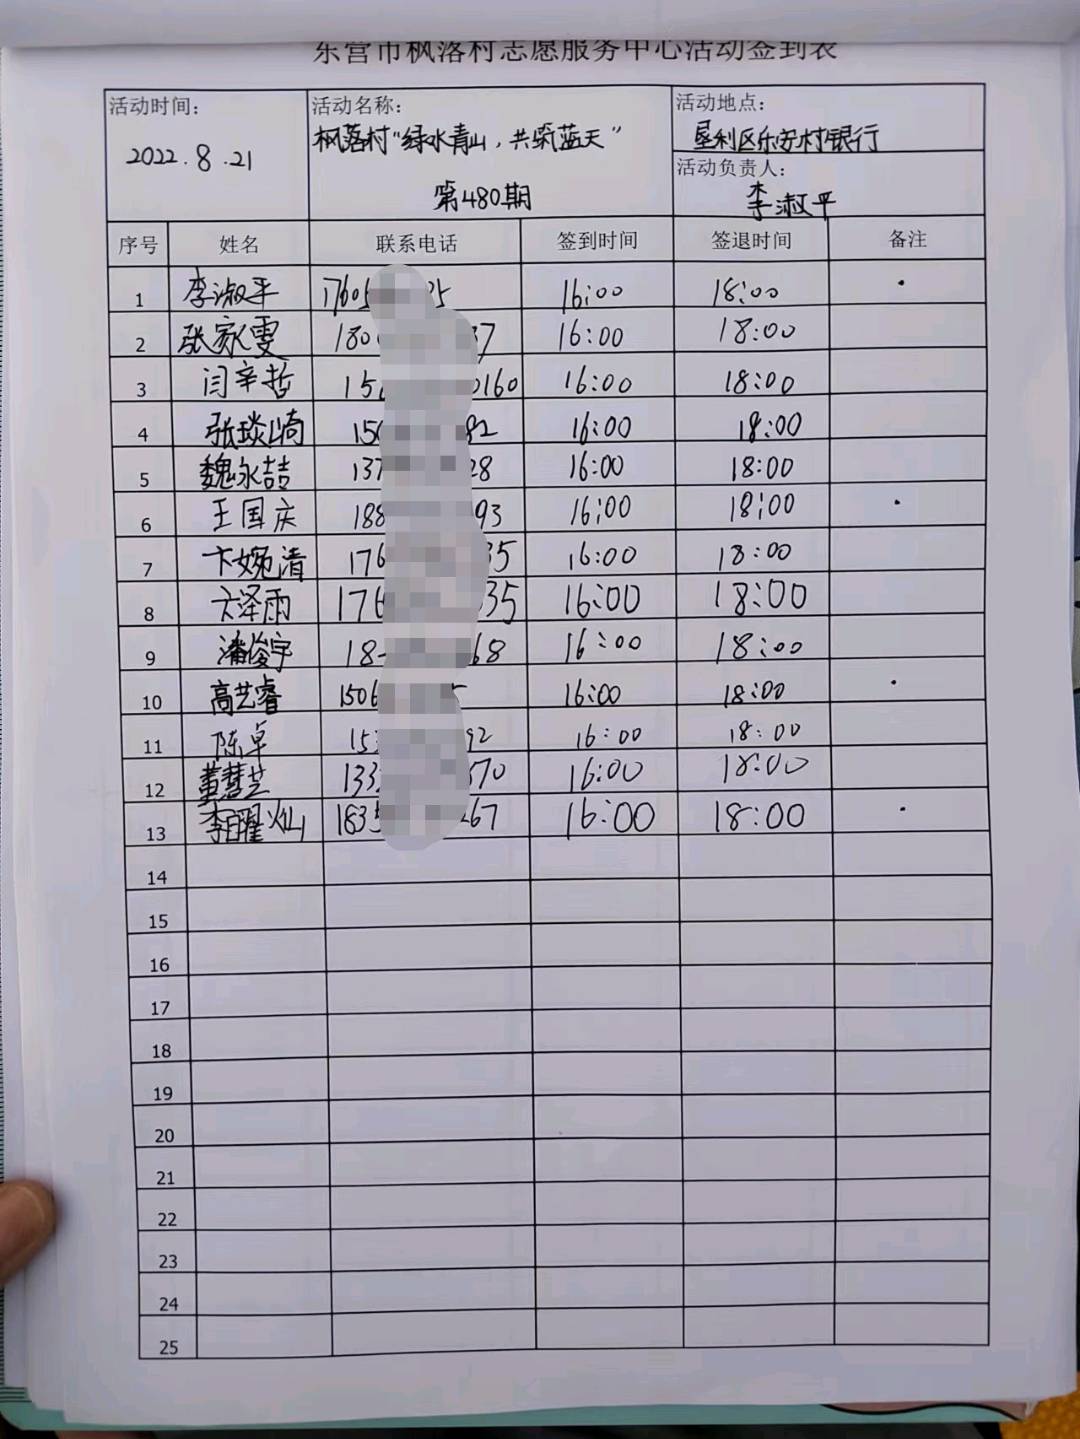 东营市枫落村志愿服务中心活动签到表
活动时间: 活动名称: 活动地点:
2022.8.21 枫落村“绿水青山,共筑蓝天” 垦利区乐安村镇银行
第480期
活动负责人:
李淑平
序号 姓名 联系电话 签到时间 签退时间 备注
1 李淑平 16:00 18:00 ·
2 张家雯 16:00 18:00
3 闫辛哲 0160 16:00 18:00
4 张琰崎 16:00 18:00
5 魏永喆 16:00 18:00
6 王国庆 188 93 16:00 18:00 ·
7 卞婉清 176 35 16:00 18:00
8 卞泽雨 176 35 16:00 18:00
9 潘俊宇 18 68 16:00 18:00
10 高艺睿 1506 16:00 18:00 ·
11 陈卓 92 16:00 18:00
12 董慧芝 133 70 16:00 18:00
13 李曜灿 1835 267 16:00 18:00 ·
14
15
16
17
18
19
20
21
22
23
24
25